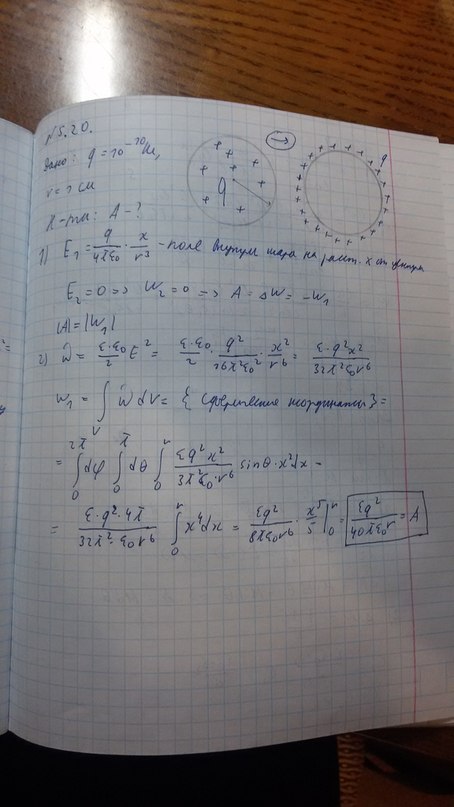 N5.20.
Дано: q = 10⁻¹⁰ Кл,
r = 1 см
Н-ти: A - ?
q
q
1) E₁ = q/(4πε₀) · x/r³ - поле внутри шара на раст. x от центра
E₂ = 0 => W₂ = 0 => A = ΔW = -W₁
|A| = |W₁|
2) ŵ = (ε·ε₀/2) E² = (ε·ε₀/2) · q²/(16π²ε₀²) · x²/r⁶ = ε·q²x²/(32π²ε₀r⁶)
W₁ = ∫_V ŵ dV = { сферические координаты } =
= ∫₀^{2π} dφ ∫₀^π dθ ∫₀^r εq²x²/(32π²ε₀·r⁶) sinθ·x²dx =
= ε·q²·4π/(32π²·ε₀r⁶) ∫₀^r x⁴dx = εq²/(8πε₀r⁶) · x⁵/5 |₀^r = εq²/(40πε₀r) = A